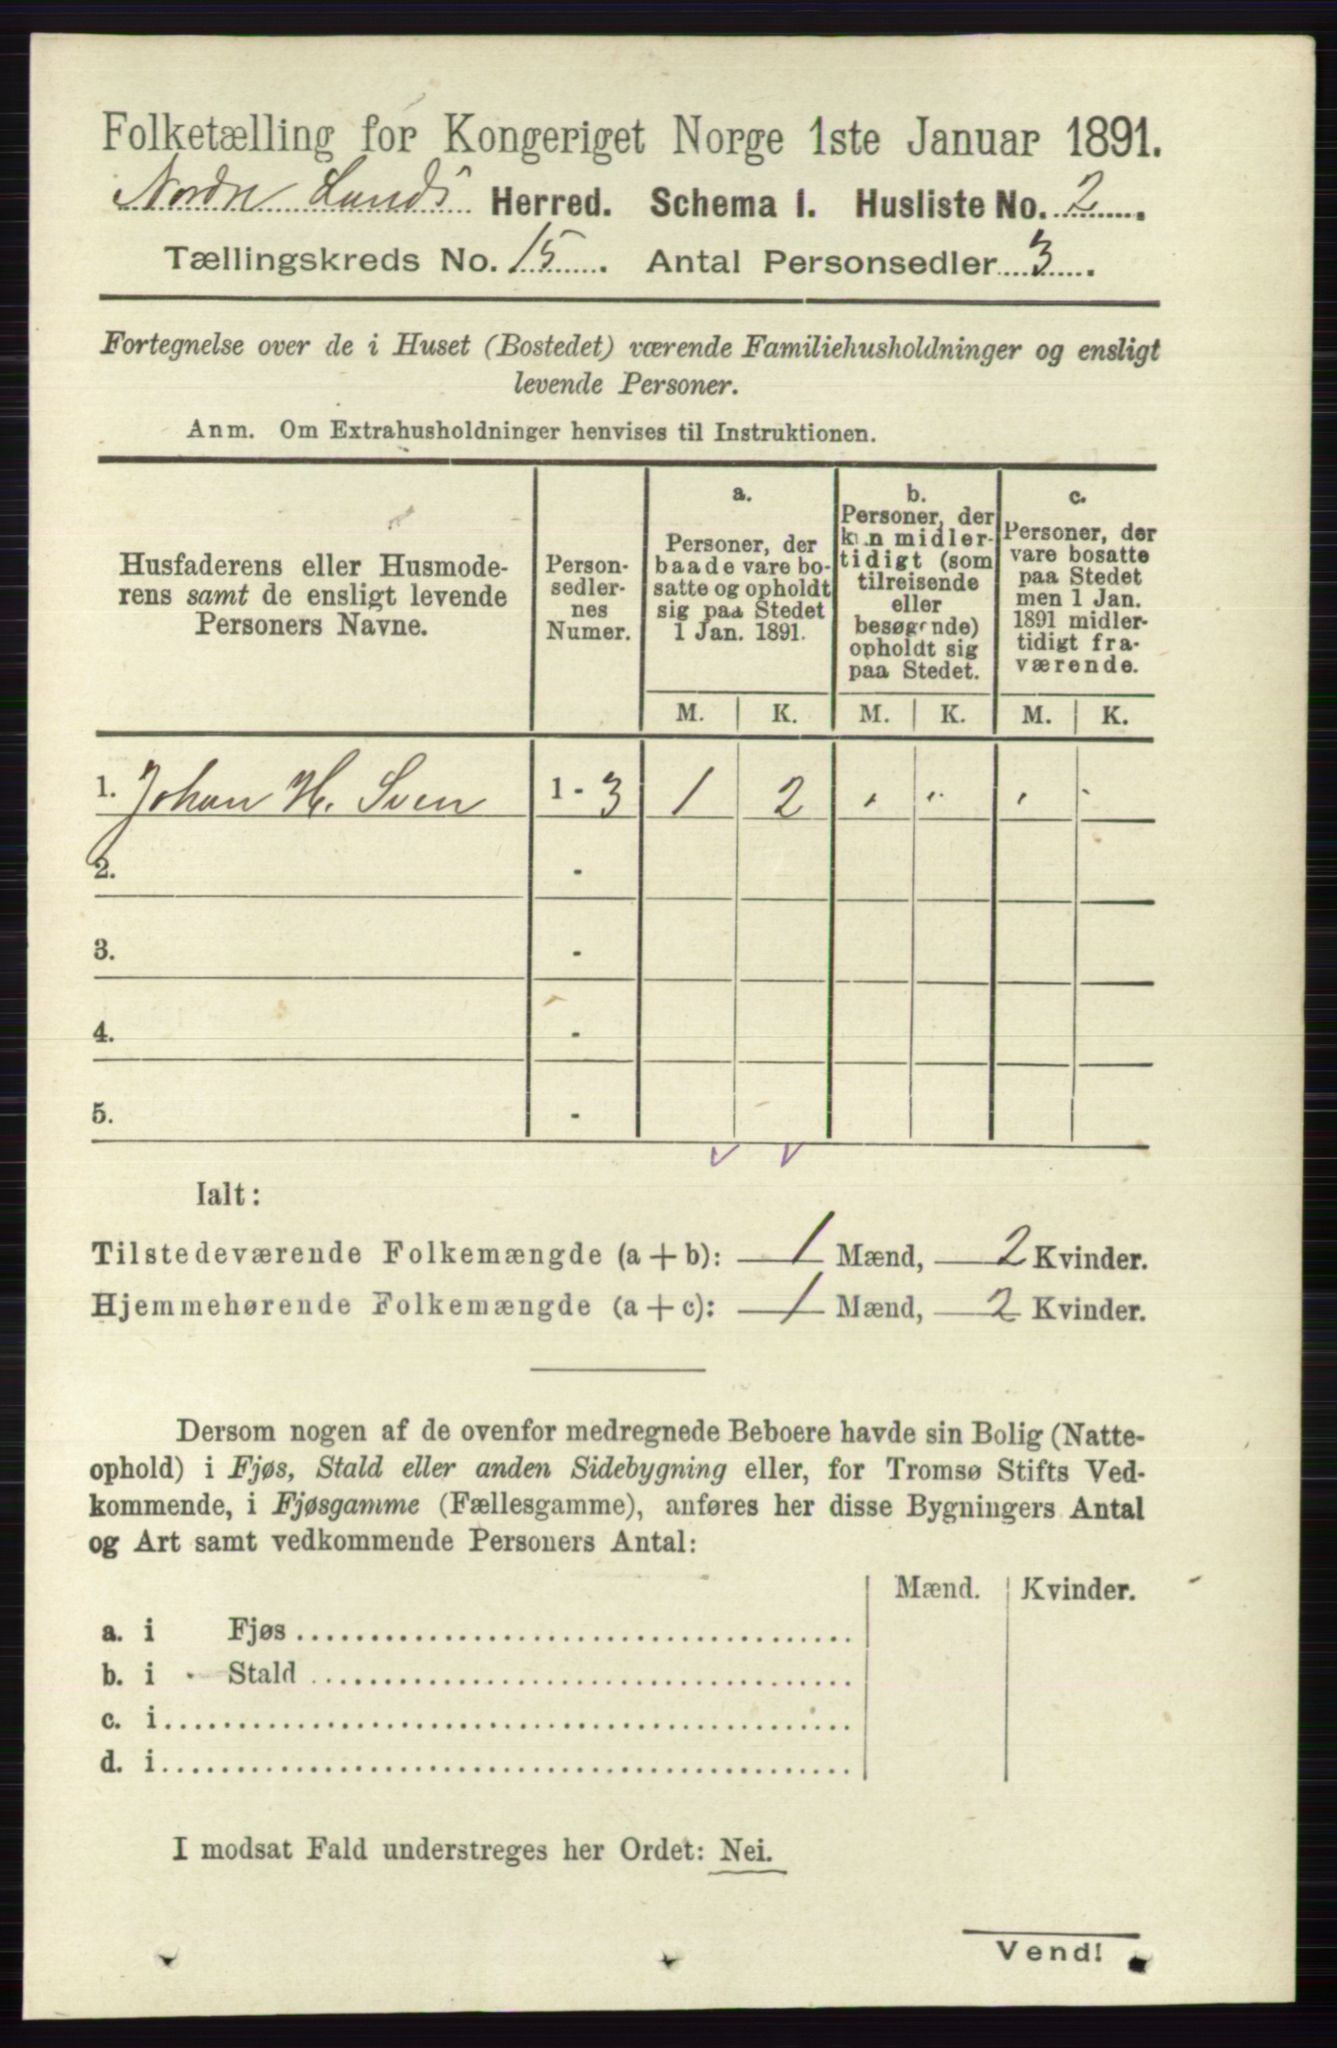 Folketælling for Kongeriget Norge 1ste Januar 1891.
Nordre Lands Herred. Schema I. Husliste No. 2.
Tællingskreds No. 15. Antal Personsedler 3.
Fortegnelse over de i Huset (Bostedet) værende Familiehusholdninger og ensligt
levende Personer.
Anm. Om Extrahusholdninger henvises til Instruktionen.
Husfaderens eller Husmode-
rens samt de ensligt levende
Personers Navne.
Person-
sedler-
nes
Numer.
a.
Personer, der
baade vare bo-
satte og opholdt
sig paa Stedet
1 Jan. 1891.
b.
Personer, der
kun midler-
tidigt (som
tilreisende
eller
besøgende)
opholdt sig
paa Stedet.
c.
Personer, der
vare bosatte
paa Stedet
men 1 Jan.
1891 midler-
tidigt fra-
værende.
M. K. M. K. M. K.
1. Johan H. Sven 1 - 3 1 2 " " " "
2. -
3. -
4. -
5. -
Ialt:
Tilstedeværende Folkemængde (a + b): 1 Mænd, 2 Kvinder.
Hjemmehørende Folkemængde (a + c): 1 Mænd, 2 Kvinder.
Dersom nogen af de ovenfor medregnede Beboere havde sin Bolig (Natte-
ophold) i Fjøs, Stald eller anden Sidebygning eller, for Tromsø Stifts Ved-
kommende, i Fjøsgamme (Fællesgamme), anføres her disse Bygningers Antal
og Art samt vedkommende Personers Antal:
Mænd. Kvinder.
a. i Fjøs
b. i Stald
c. i
d. i
I modsat Fald understreges her Ordet: Nei.
Vend!